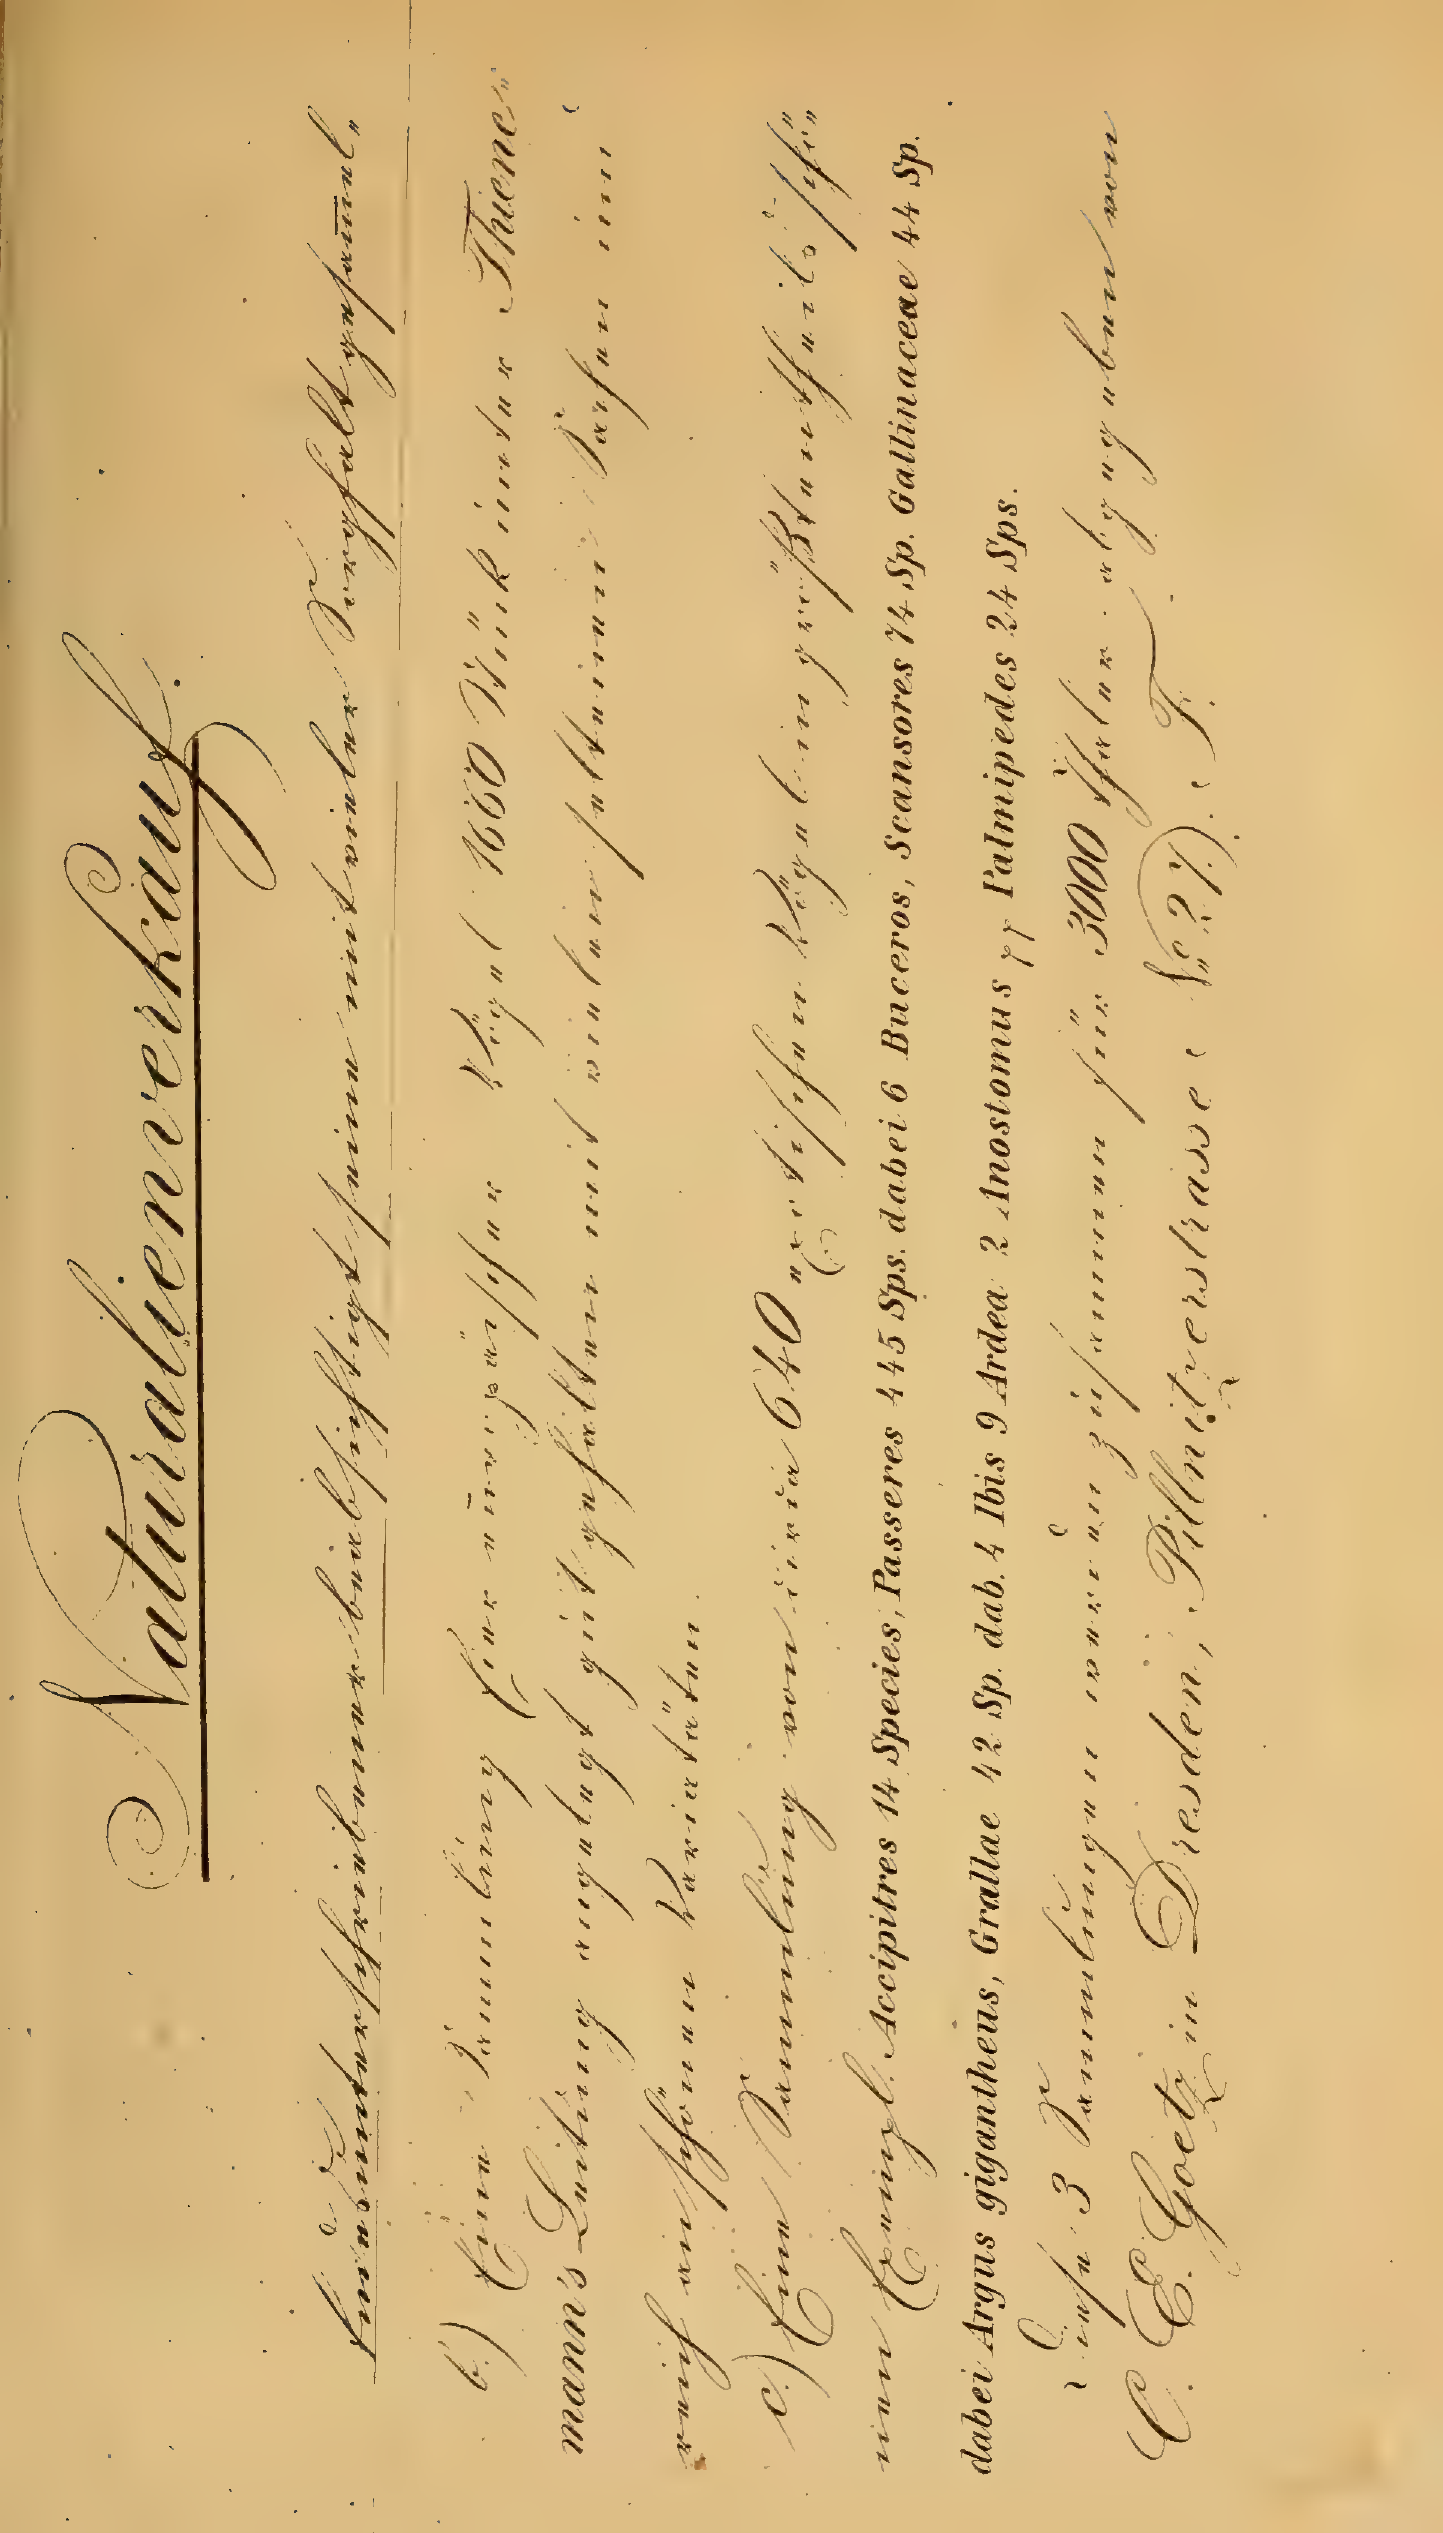 Naturalienverkauf.
Endesunterschriebener beabsichtigt seine mit vieler Sorgfalt gesam̄el„
b.) Eine Sammlung hier europäischer Vögel 1660 Stück unter Thiene„
mann's Leitung angelegt gut gehalten mit vielen seltenen Sachen und
reich an schönen Varietäten.
c.) Eine Sammlung von circa 640 exotischen Vögeln in größtentheils schö„
nen Exempl. Accipitres 14 Species, Passeres 445 Sps. dabei 6 Buceros, Scansores 74 Sp. Gallinaceae 44 Sp.
dabei Argus gigantheus, Grallae 42 Sp. dab. 4 Ibis 9 Ardea 2 Anostomus pp Palmipedes 24 Sps.
Diese 3 Sammlungen werden zusammen für 3000 Thaler abgegeben von
C. E. Goetz in Dresden, Pillnitzerstrasse № 27). T.